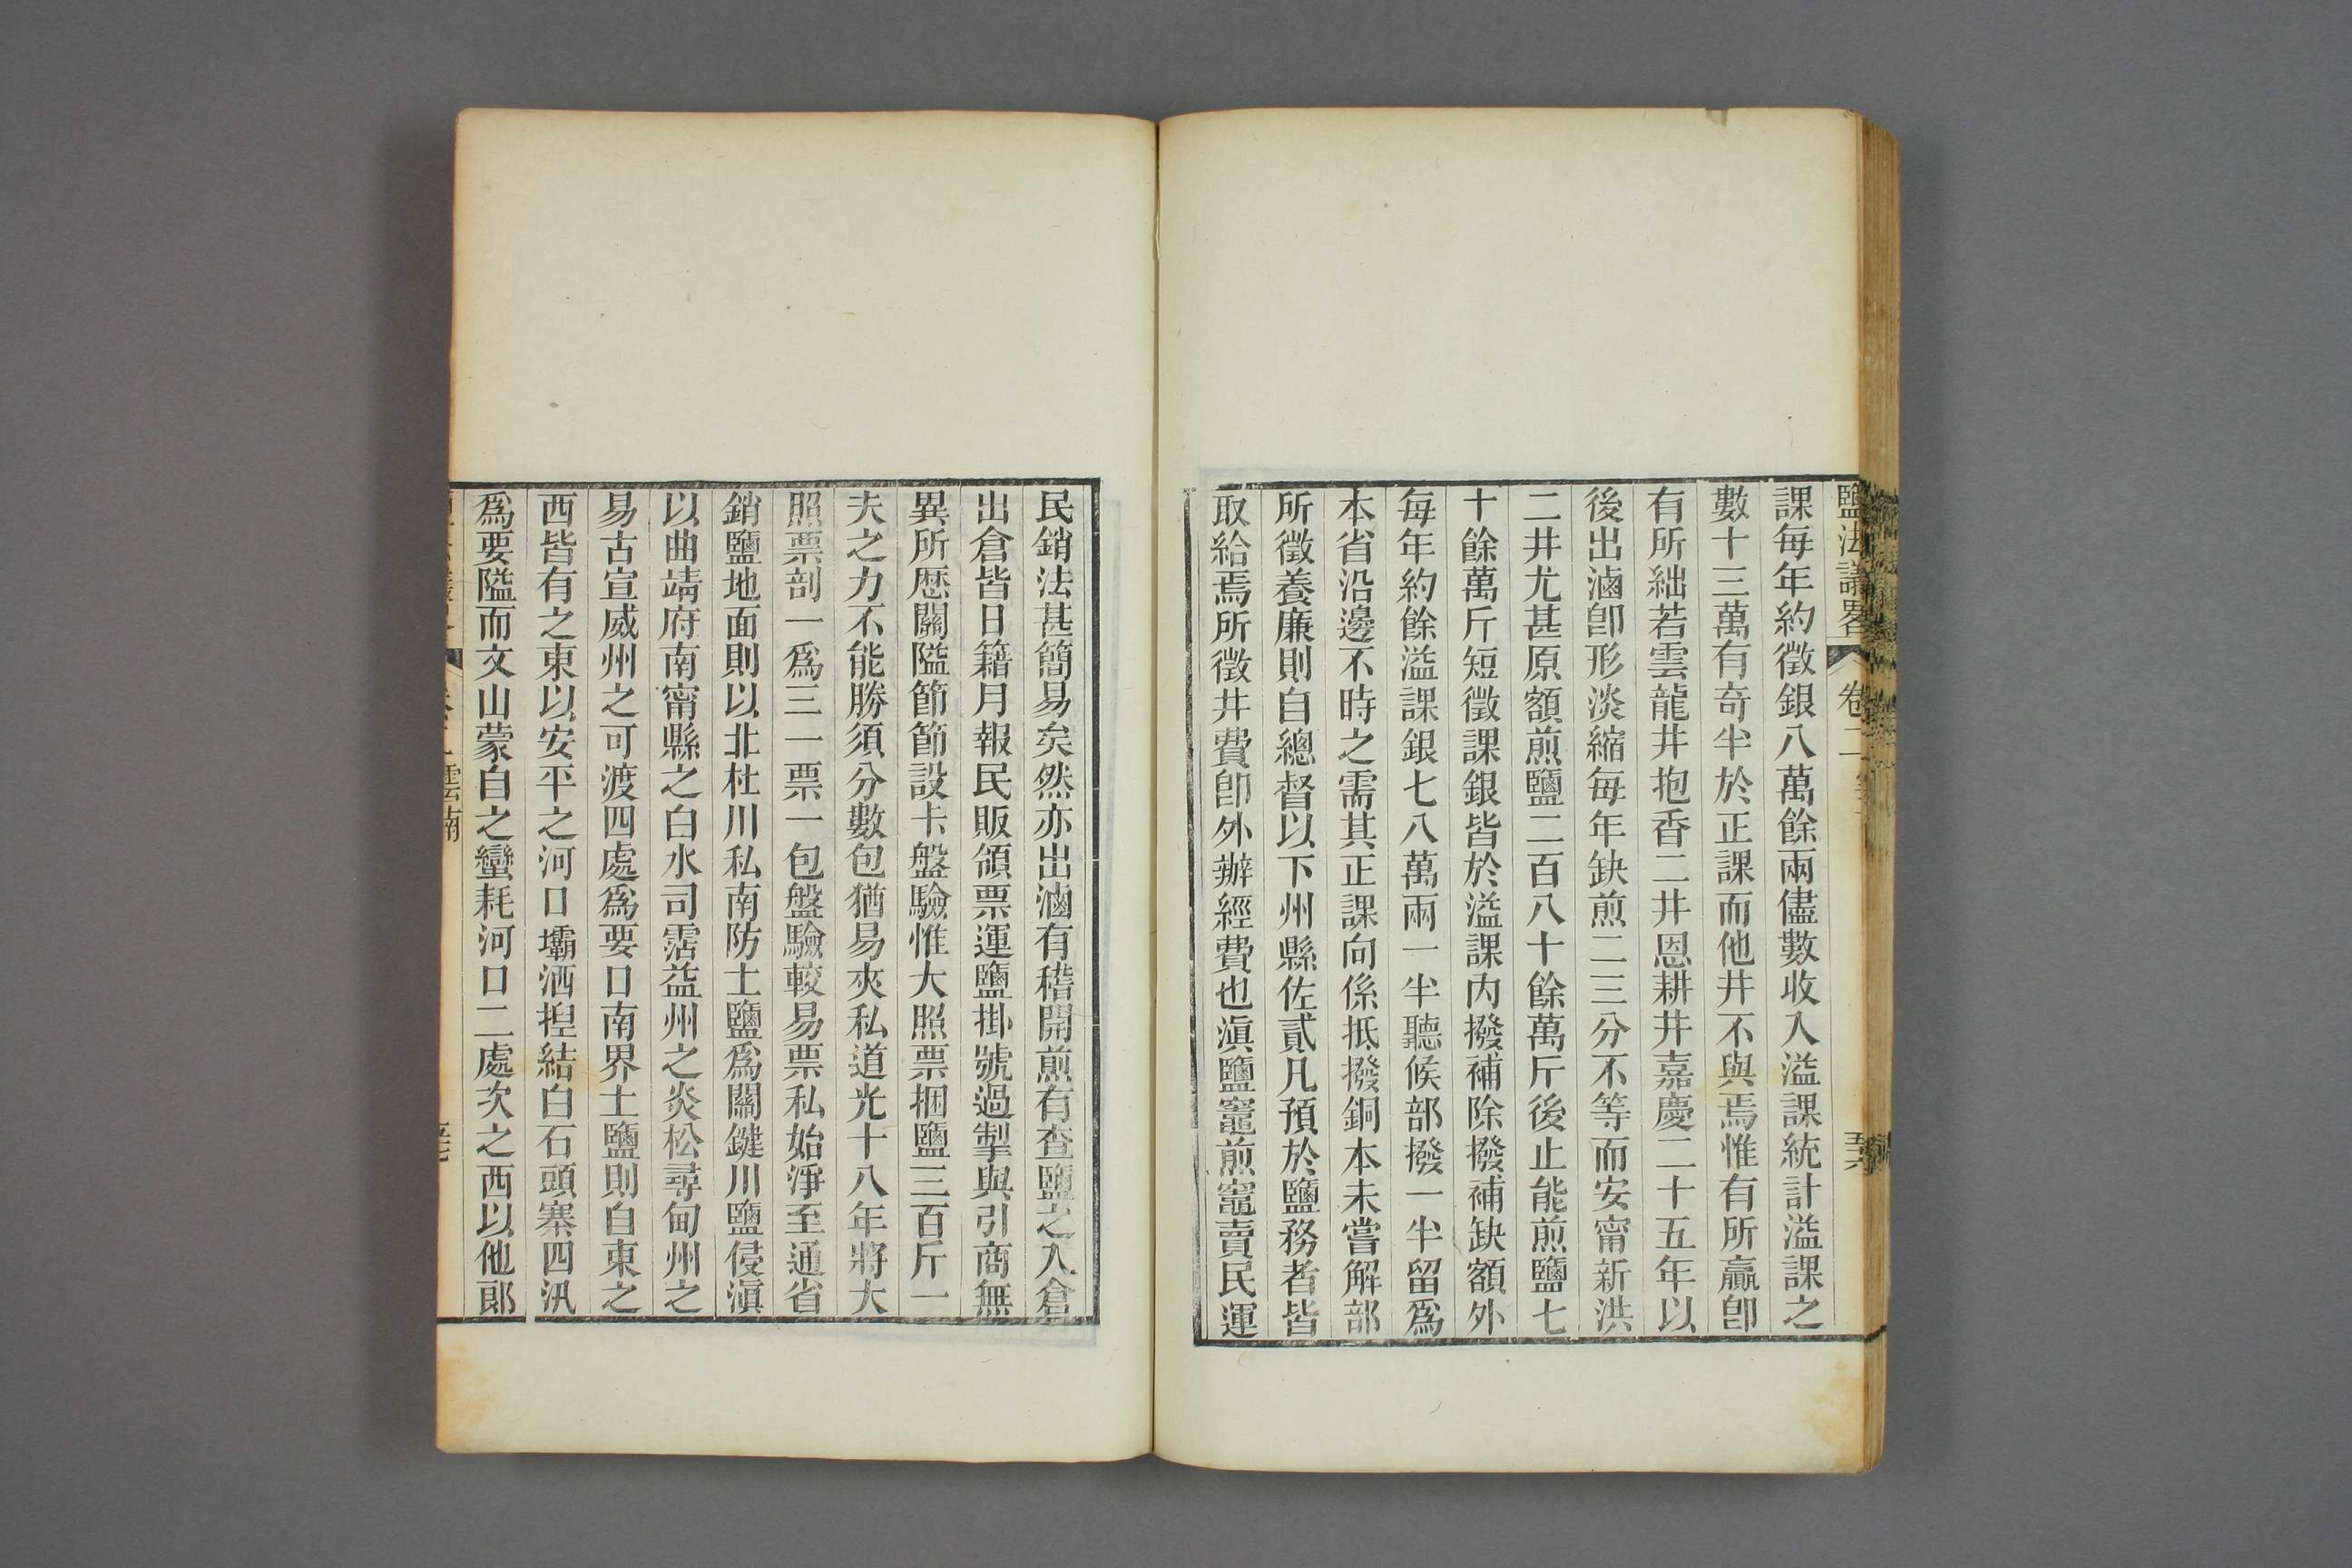 鹽法議畧 卷二
五六
課每年約徵銀八萬餘兩儘數收入溢課統計溢課之
數十三萬有奇半於正課而他井不與焉惟有所贏卽
有所絀若雲龍井抱香二井恩耕井嘉慶二十五年以
後出滷卽形淡縮每年缺煎二三分不等而安甯新洪
二井尤甚原額煎鹽二百八十餘萬斤後止能煎鹽七
十餘萬斤短徵課銀皆於溢課內撥補除撥補缺額外
每年約餘溢課銀七八萬兩一半聽候部撥一半留爲
本省沿邊不時之需其正課向係抵撥銅本未嘗解部
所徵養廉則自總督以下州縣佐貳凡預於鹽務者皆
取給焉所徵井費卽外辦經費也滇鹽竈煎竈賣民運
民銷法甚簡易矣然亦出滷有稽開煎有查鹽之入倉
出倉皆日籍月報民販領票運鹽掛號過掣與引商無
異所歷關隘節節設卡盤驗惟大照票捆鹽三百斤一
夫之力不能勝須分數包猶易夾私道光十八年將大
照票剖一爲三一票一包盤驗較易票私始淨至通省
銷鹽地面則以北杜川私南防土鹽爲關鍵川鹽侵滇
以曲靖府南甯縣之白水司霑益州之炎松尋甸州之
易古宣威州之可渡四處爲要口南界土鹽則自東之
西皆有之東以安平之河口壩洒揑結白石頭寨四汛
爲要隘而文山蒙自之蠻耗河口二處次之西以他郎
雲南